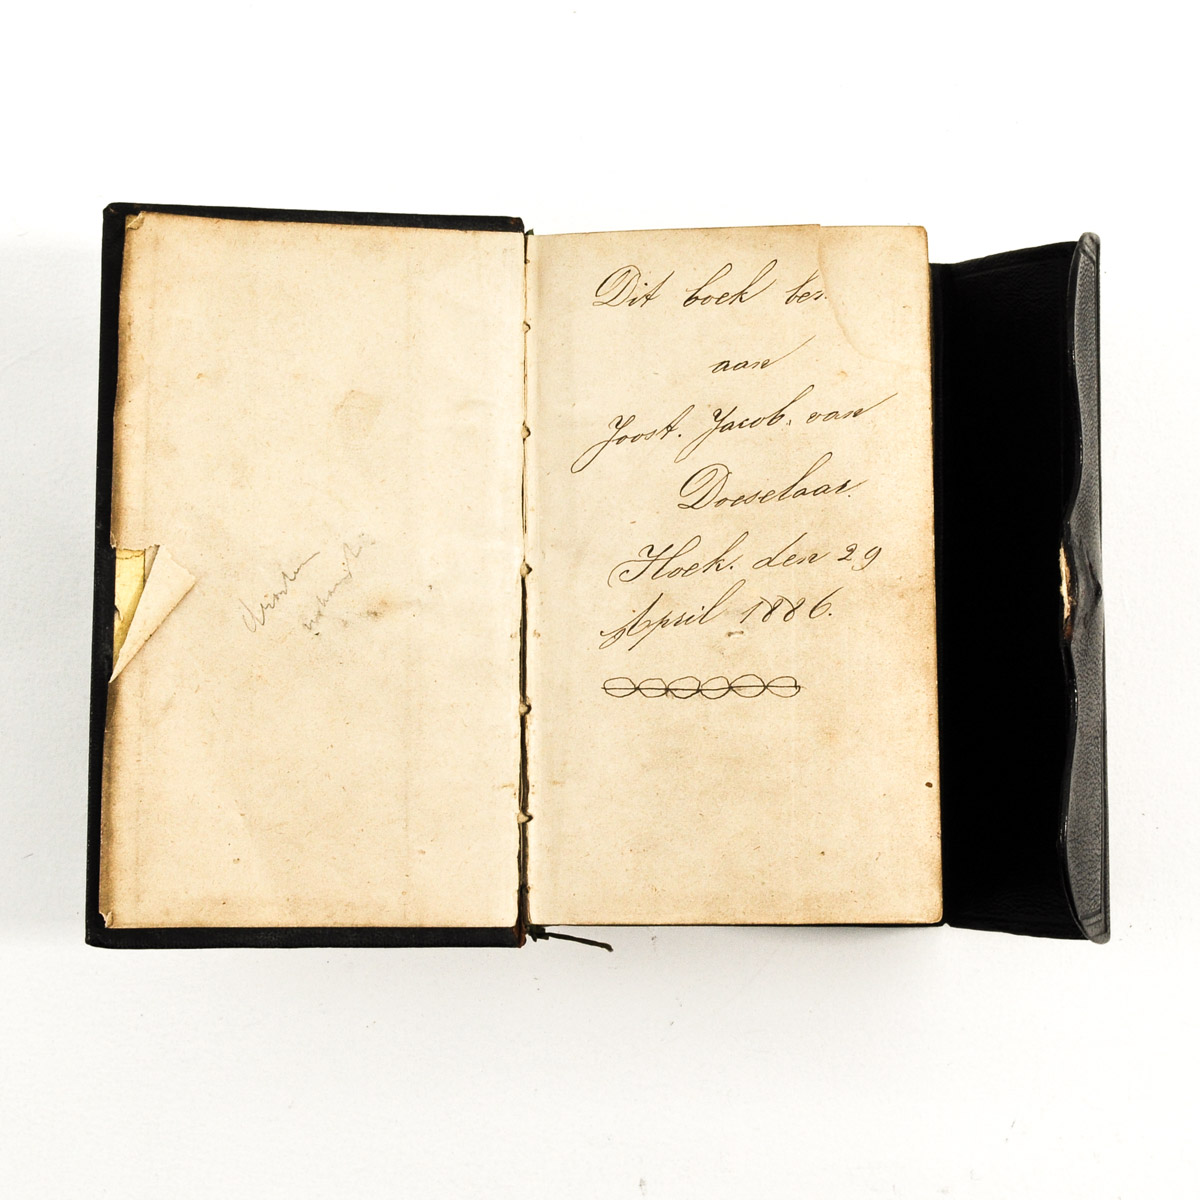 Dit boek
aan
Joost. Jacob. van
Doeselaar.
Hoek. den 29
April 1886.